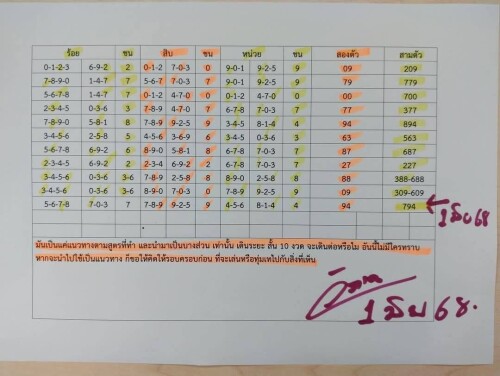 ร้อย ชน สิบ ชน หน่วย ชน สองตัว สามตัว
0-1-2-3 6-9-2 2 0-1-2 7-0-3 0 9-0-1 9-2-5 9 09 209
7-8-9-0 1-4-7 7 5-6-7 7-0-3 7 9-0-1 9-2-5 9 79 779
5-6-7-8 1-4-7 7 0-1-2 4-7-0 0 0-1-2 4-7-0 0 00 700
2-3-4-5 0-3-6 3 7-8-9 4-7-0 7 6-7-8 7-0-3 7 77 377
7-8-9-0 5-8-1 8 7-8-9 9-2-5 9 3-4-5 8-1-4 4 94 894
3-4-5-6 2-5-8 5 4-5-6 3-6-9 6 3-4-5 0-3-6 3 63 563
5-6-7-8 6-9-2 6 8-9-0 5-8-1 8 6-7-8 0-3-6 7 87 687
2-3-4-5 6-9-2 2 2-3-4 6-9-2 2 6-7-8 7-0-3 7 27 227
3-4-5-6 0-3-6 3-6 7-8-9 2-5-8 8 8-9-0 2-5-8 8 88 388-688
3-4-5-6 0-3-6 3-6 8-9-0 7-0-3 0 7-8-9 9-2-5 9 09 309-609
5-6-7-8 7-0-3 7 7-8-9 9-2-5 9 4-5-6 8-1-4 4 94 794
1 มิย 68
มันเป็นแค่แนวทางตามสูตรที่ทำ และนำมาเป็นบางส่วน เท่านั้น เดินระยะ สั้น 10 งวด จะเดินต่อหรือไม่ อันนี้ไม่มีใครทราบ
หากจะนำไปใช้เป็นแนวทาง ก็ขอให้คิดให้รอบครอบก่อน ที่จะเล่นหรือทุ่มเทไปกับสิ่งที่เห็น
1 มิย 68.